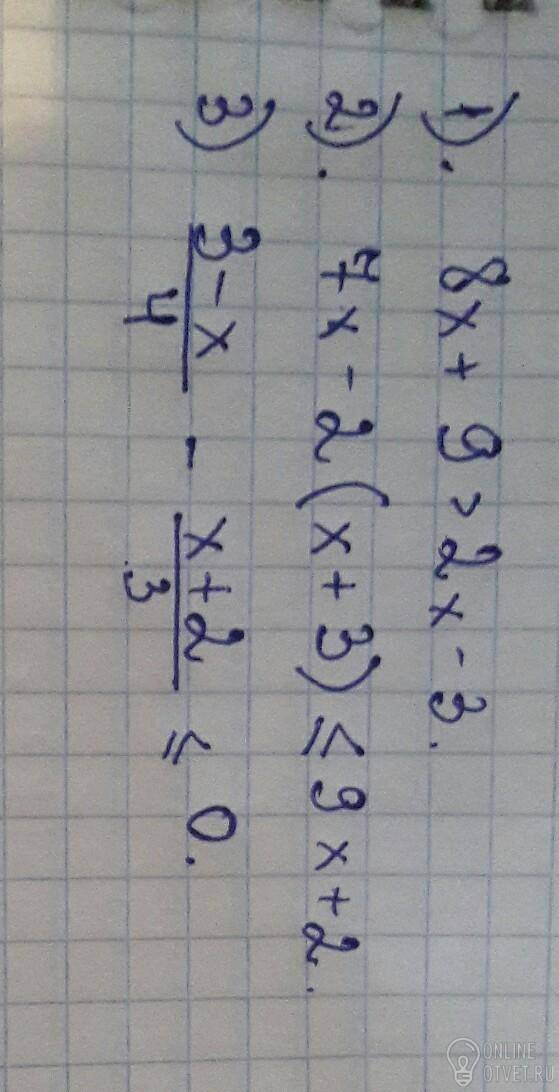 1). 8x + 9 > 2x - 3.
2). 7x - 2(x + 3) ≤ 9x + 2.
3) (3 - x)/4 - (x + 2)/3 ≤ 0.
ONLINE
OTVET.RU